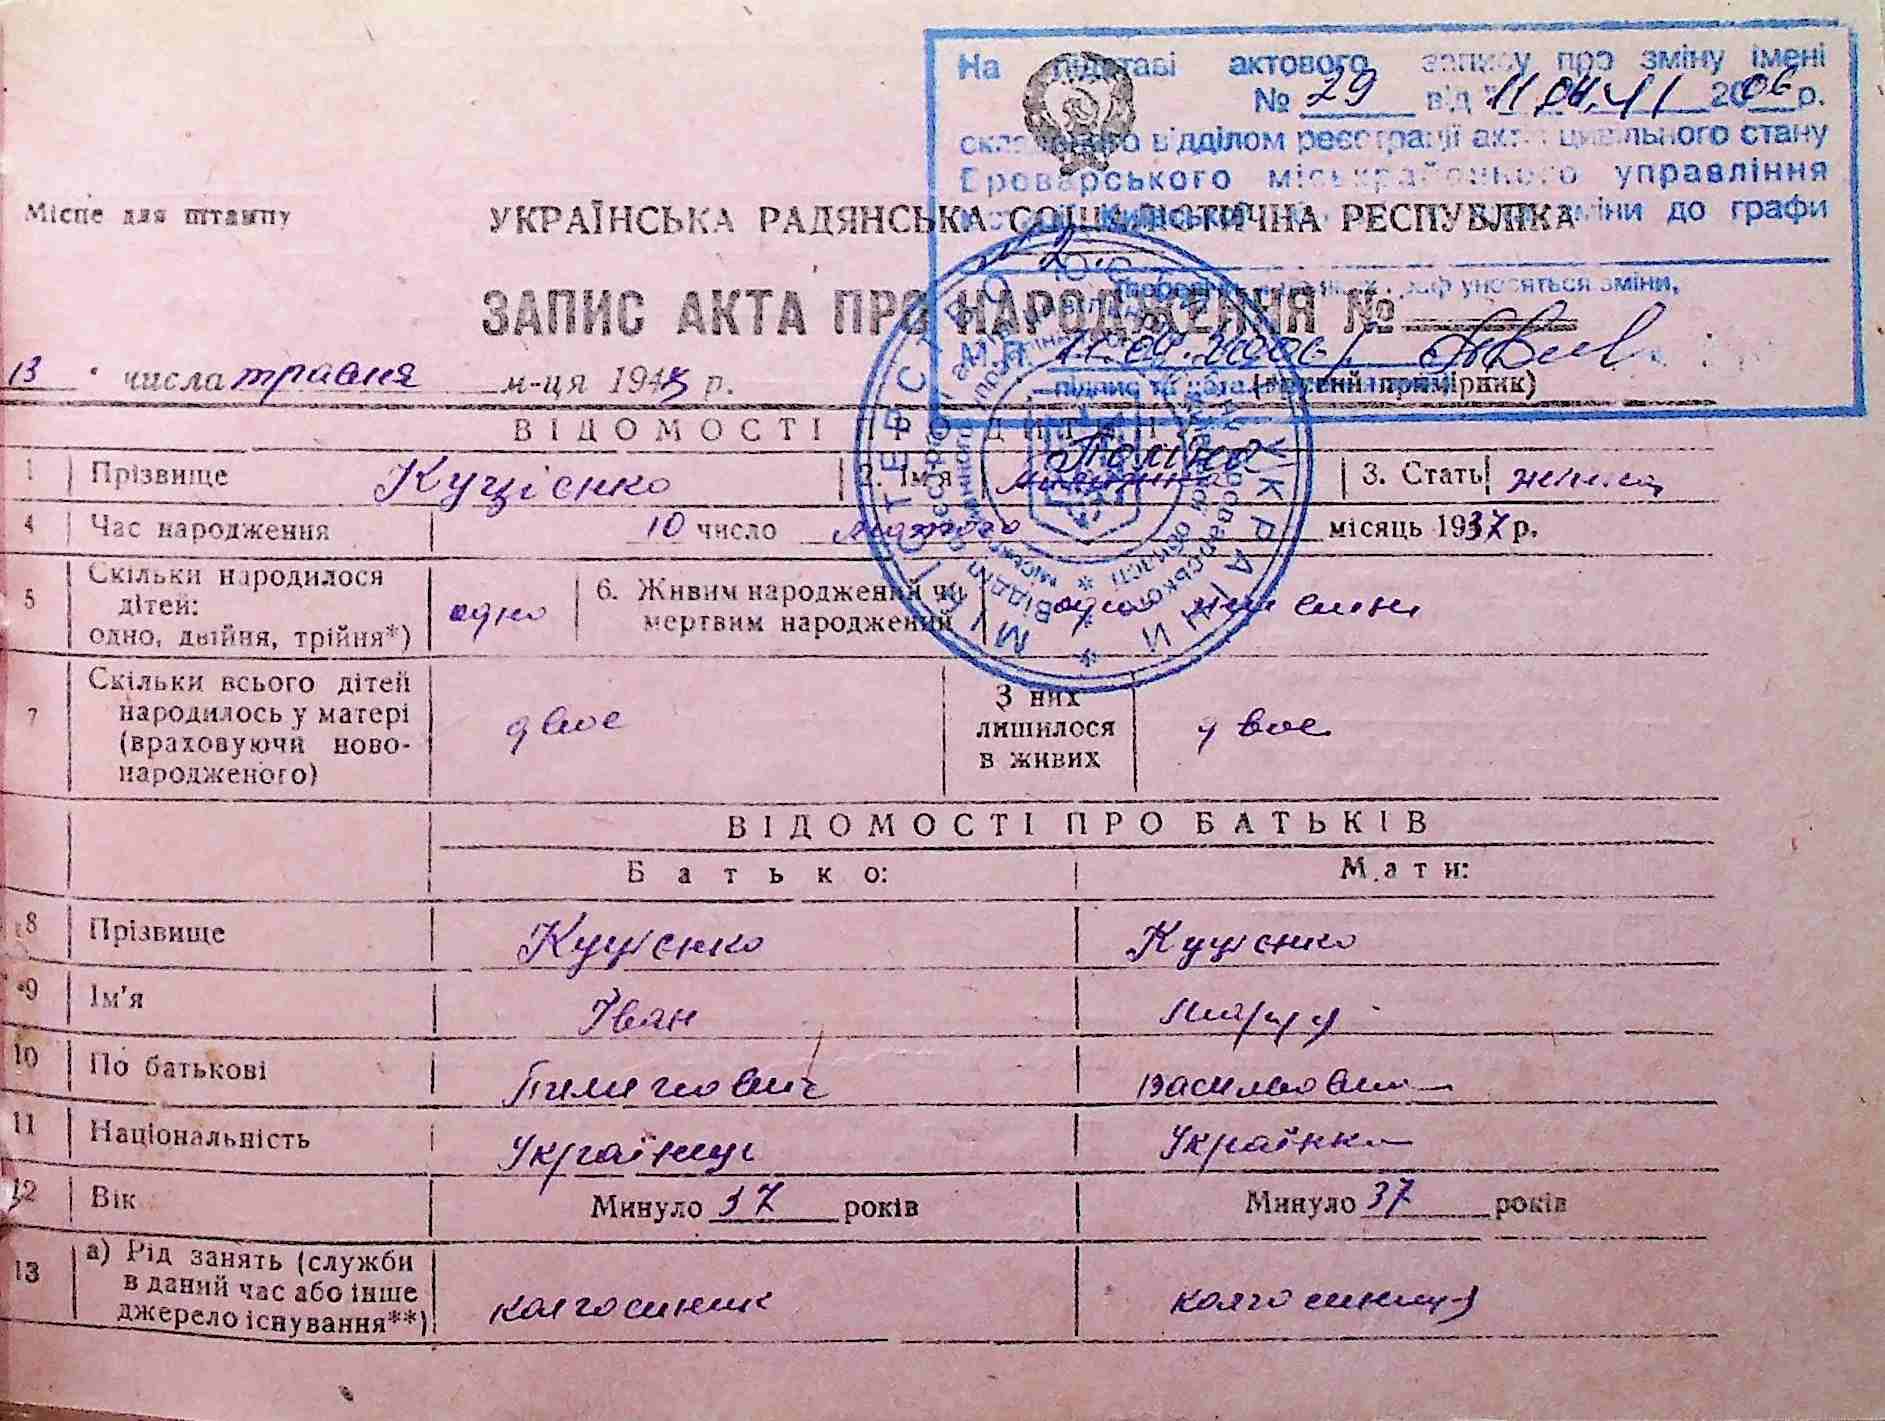 На підставі актового запису про зміну імені
№ 29 від "11" 04. 2006 р.
складеного відділом реєстрації актів цивільного стану
Броварського міськрайонного управління
Київської зміни до графи
2
уносяться зміни,
11.04.2006
підпис та
Місце для штампу
УКРАЇНСЬКА РАДЯНСЬКА СОЦІАЛІСТИЧНА РЕСПУБЛІКА
ЗАПИС АКТА ПРО НАРОДЖЕННЯ №
13 числа травня м-ця 194 р.
(другий примірник)
ВІДОМОСТІ ПРО ДИТИНУ
1 Прізвище Куцієнко 2. Ім'я Поліна 3. Стать жіноча
4 Час народження 10 число лютого місяць 1937 р.
5 Скільки народилося
дітей:
одно, двійня, трійня*) одно
6. Живим народжений чи
мертвим народжений одно живим
7 Скільки всього дітей
народилось у матері
(враховуючи ново-
народженого) двоє
З них
лишилося
в живих двоє
ВІДОМОСТІ ПРО БАТЬКІВ
Батько: Мати:
8 Прізвище Куцієнко Куцієнко
9 Ім'я Іван
10 По батькові Пилипович Васильовна
11 Національність Українець Українка
12 Вік Минуло 37 років Минуло 37 років
13 а) Рід занять (служби
в даний час або інше
джерело існування**) колгоспник колгоспниця
МІНІСТЕРСТВО ЮСТИЦІЇ УКРАЇНИ